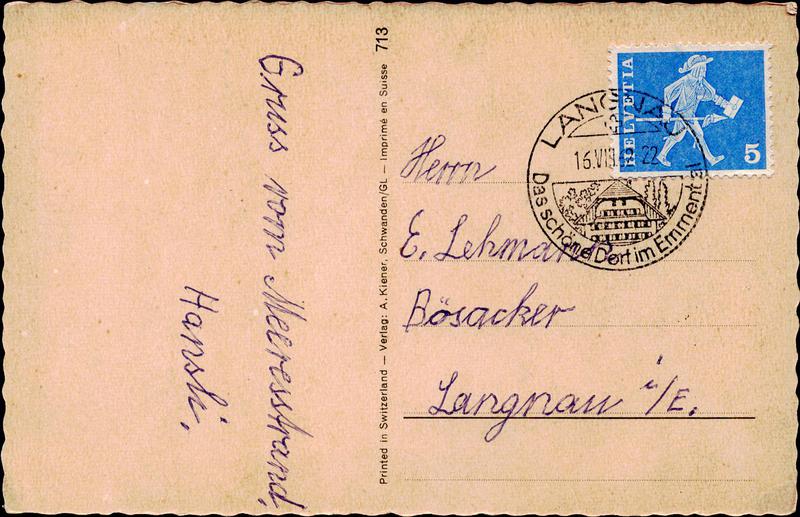 Gruss vom Meeresstrand,
Hansli.
Printed in Switzerland — Verlag: A. Kiener, Schwanden/GL — Imprimé en Suisse 713
HELVETIA
5
LANGNAU
16.VIII.62-22
Das schöne Dorf im Emmental
Herrn
E. Lehmann
Bösacker
Langnau i/E.